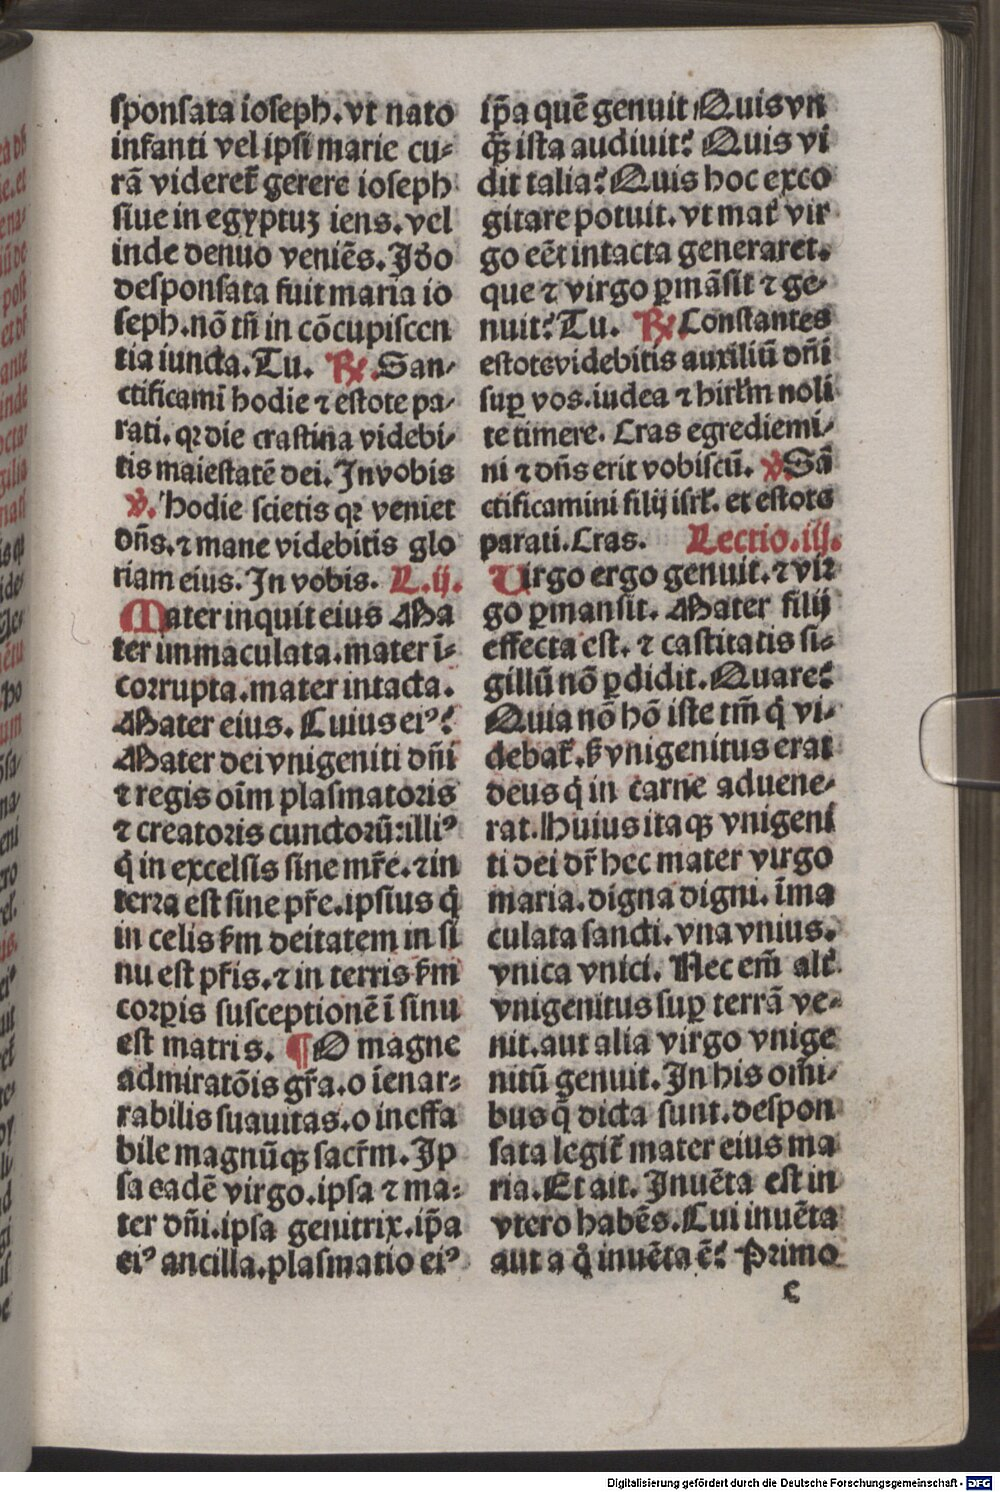 ſponſata ioſeph. vt nato
infanti vel ipſi marie cu-
rã videret̃ gerere ioſeph
ſiue in egyptuꝫ iens. vel
inde denuo veniẽs. Jdo
deſponſata fuit maria io
ſeph. nõ tñ in cõcupiſcen
tia iuncta. Tu. ℟. San-
ctificamĩ hodie ⁊ eſtote pa-
rati. qꝛ die craſtina videbi-
tis maieſtatẽ dei. In vobis
℣. Hodie ſcietis qꝛ veniet
dñs. ⁊ mane videbitis glo
riam eius. In vobis. L. ij.
Mater inquit eius Ma
ter immaculata. mater ĩ-
corrupta. mater intacta.
Mater eius. Cuius eiꝰ?
Mater dei vnigeniti dñi
⁊ regis oĩm plaſmatoris
⁊ creatoris cunctorũ: illiꝰ
q̇ in excelſis ſine mr̃e. ⁊ in
terra eſt ſine pr̃e. ipſius q̇
in celis ẜm deitatem in ſi
nu eſt pr̃is. ⁊ in terris ẜm
corꝑis ſuſceptionẽ ĩ ſinu
eſt matris. ¶ O magne
admiratõis gr̃a. o ĩenar-
rabilis ſuauitas. o ineffa
bile magnũqꝫ ſacr̃m. Ip
ſa eadẽ virgo. ipſa ⁊ ma-
ter dñi. ipſa genitrix. ip̃a
eiꝰ ancilla. plaſmatio eiꝰ
ip̃a quẽ genuit Quis vn
q̃ꝫ iſta audiuit? Quis vi
dit talia? Quis hoc exco
gitare potuit. vt mat̃ vir
go eẽt intacta generaret.
que ⁊ virgo ꝑmãſit ⁊ ge-
nuit? Tu. ℟. Conſtantes
eſtote videbitis auxiliũ dñi
ſuꝑ vos. iudea ⁊ hirłm noli
te timere. Cras egrediemi-
ni ⁊ dñs erit vobiſcũ. ℣. Sã
ctificamini filij iſrł. et eſtote
parati. Cras. Lectio. iij.
Virgo ergo genuit. ⁊ vir
go ꝑmanſit. Mater filij
effecta eſt. ⁊ caſtitatis ſi-
gillũ nõ ꝑdidit. Quare?
Quia nõ hõ iſte tm̃ q̇ vi-
debat̃. ẜ vnigenitus erat
deus q̇ in carne aduene-
rat. Huius itaqꝫ vnigeni
ti dei dr̃ hec mater virgo
maria. digna digni. ĩma
culata ſancti. vna vnius.
vnica vnici. Nec em̃ alt̃
vnigenitus ſuꝑ terrã ve-
nit. aut alia virgo vnige
nitũ genuit. In his om̃i-
bus q̃ dicta ſunt. deſpon
ſata legit̃ mater eius ma
ria. Et ait. Inuẽta eſt in
vtero habẽs. Cui inuẽta
aut a q̇ inuẽta ẽ? Primo
c
Digitalisierung gefördert durch die Deutsche Forschungsgemeinschaft - DFG